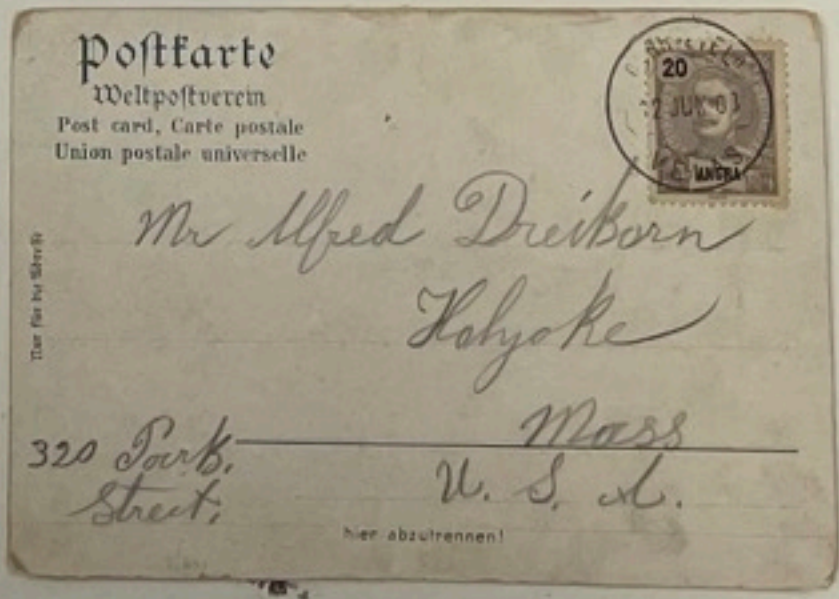 Postkarte
Weltpostverein
Post card, Carte postale
Union postale universelle
20
JUN
ANGRA
Nur für die Adresse
Mr Alfred Dreikorn
Holyoke
Mass
320 Park.
Street.
U. S. A.
hier abzutrennen!